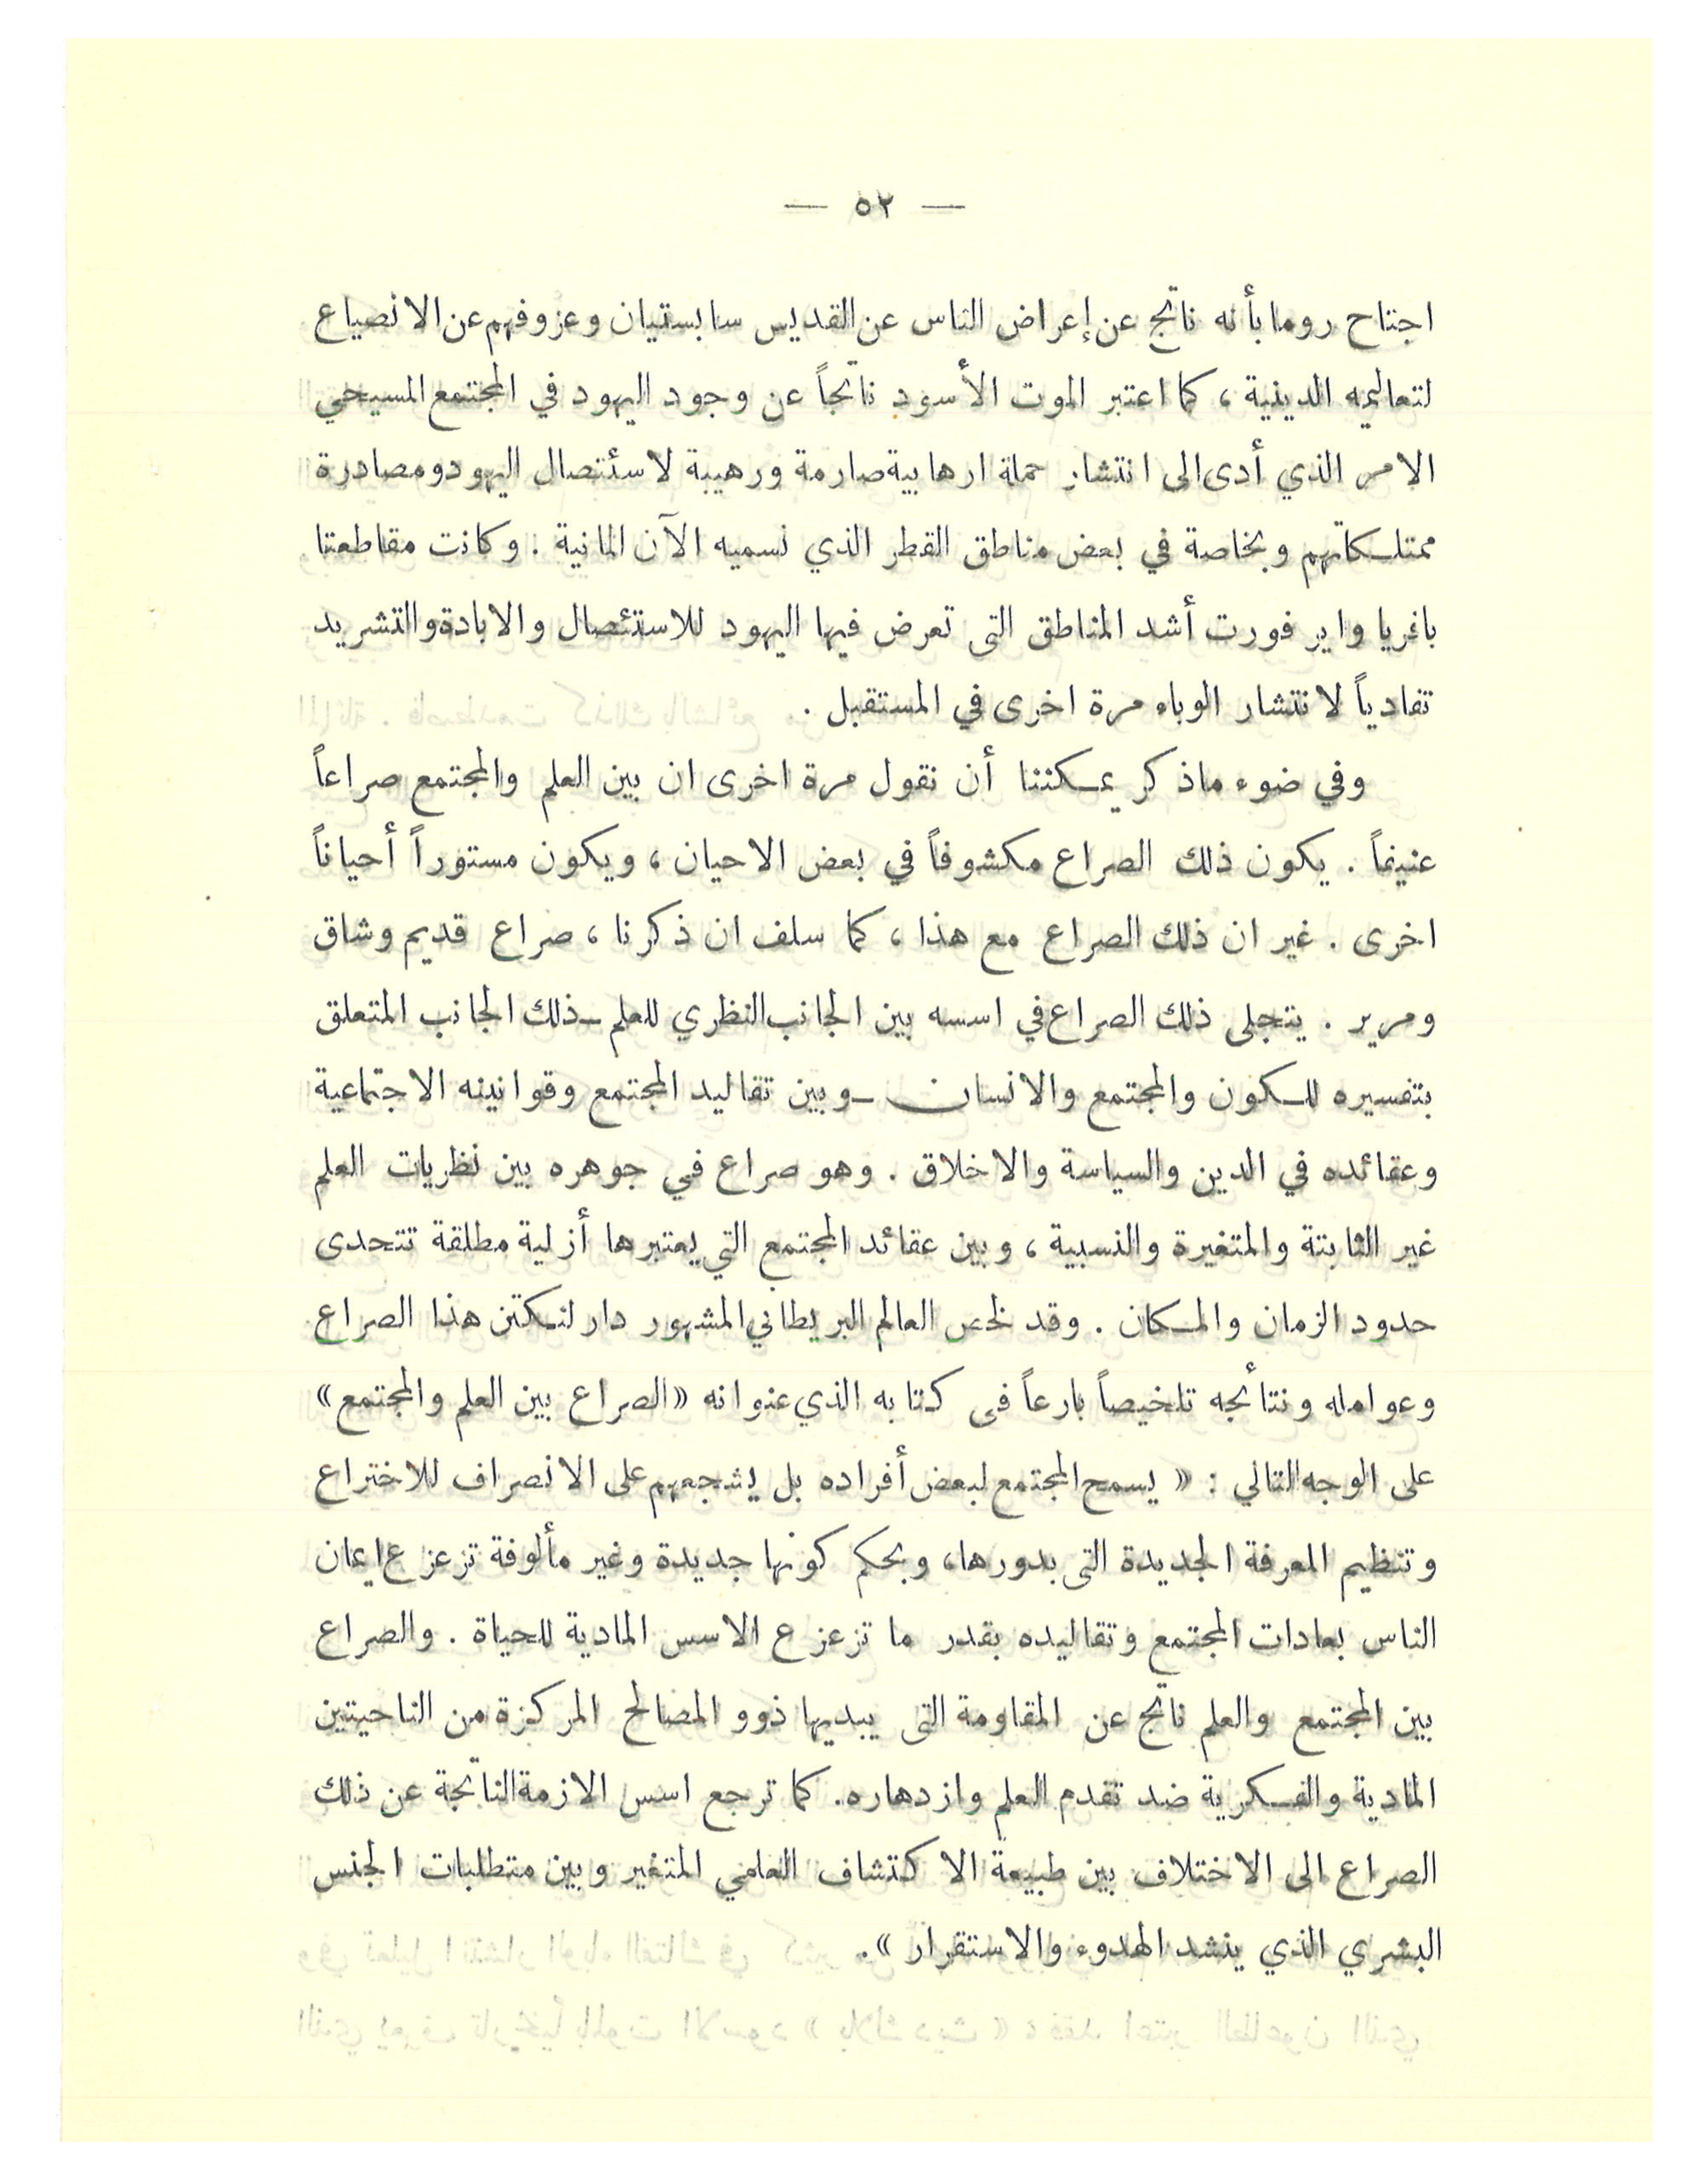 — ٥٢ —
اجتاح روما بأنه ناتج عن إعراض الناس عن القديس سابستيان وعزوفهم عن الانصياع
لتعاليمه الدينية ، كما اعتبر الموت الأسود ناتجاً عن وجود اليهود في المجتمع المسيحي
الامر الذي أدى الى انتشار حملة ارهابية صارمة ورهيبة لاسئتصال اليهود ومصادرة
ممتلكاتهم وبخاصة في بعض مناطق القطر الذي نسميه الآن المانية . وكانت مقاطعتا
باغريا واير فورت أشد المناطق التى تعرض فيها اليهود للاستئصال والابادة والتشريد
تفادياً لانتشار الوباء مرة اخرى في المستقبل .
وفي ضوء ماذكر يمكننا أن نقول مرة اخرى ان بين العلم والمجتمع صراعاً
عنيفاً . يكون ذلك الصراع مكشوفاً في بعض الاحيان ، ويكون مستوراً أحياناً
اخرى . غير ان ذلك الصراع مع هذا ، كما سلف ان ذكرنا ، صراع قديم وشاق
ومرير . يتجلى ذلك الصراع في اسسه بين الجانب النظري للعلم ــ ذلك الجانب المتعلق
بتفسيره للكون والمجتمع والانسان ــ وبين تقاليد المجتمع وقوانينه الاجتماعية
وعقائده في الدين والسياسة والاخلاق . وهو صراع في جوهره بين نظريات العلم
غير الثابتة والمتغيرة والنسبية ، وبين عقائد المجتمع التي يعتبرها أزلية مطلقة تتحدى
حدود الزمان والمكان . وقد لخص العالم البريطاني المشهور دارلنكتن هذا الصراع
وعوامله ونتائجه تلخيصاً بارعاً فى كتابه الذي عنوانه «الصراع بين العلم والمجتمع»
على الوجه التالي : « يسمح المجتمع لبعض أفراده بل يشجعهم على الانصراف للاختراع
وتنظيم المعرفة الجديدة التى بدورها، وبحكم كونها جديدة وغير مألوفة تزعزع ايمان
الناس بعادات المجتمع وتقاليده بقدر ما تزعزع الاسس المادية للحياة . والصراع
بين المجتمع والعلم ناتج عن المقاومة التى يبديها ذوو المصالح المركزة من الناحيتين
المادية والفكرية ضد تقدم العلم وازدهاره. كما ترجع اسس الازمة الناتجة عن ذلك
الصراع الى الاختلاف بين طبيعة الاكتشاف العلمي المتغير وبين متطلبات الجنس
البشري الذي ينشد الهدوء والاستقرار ».